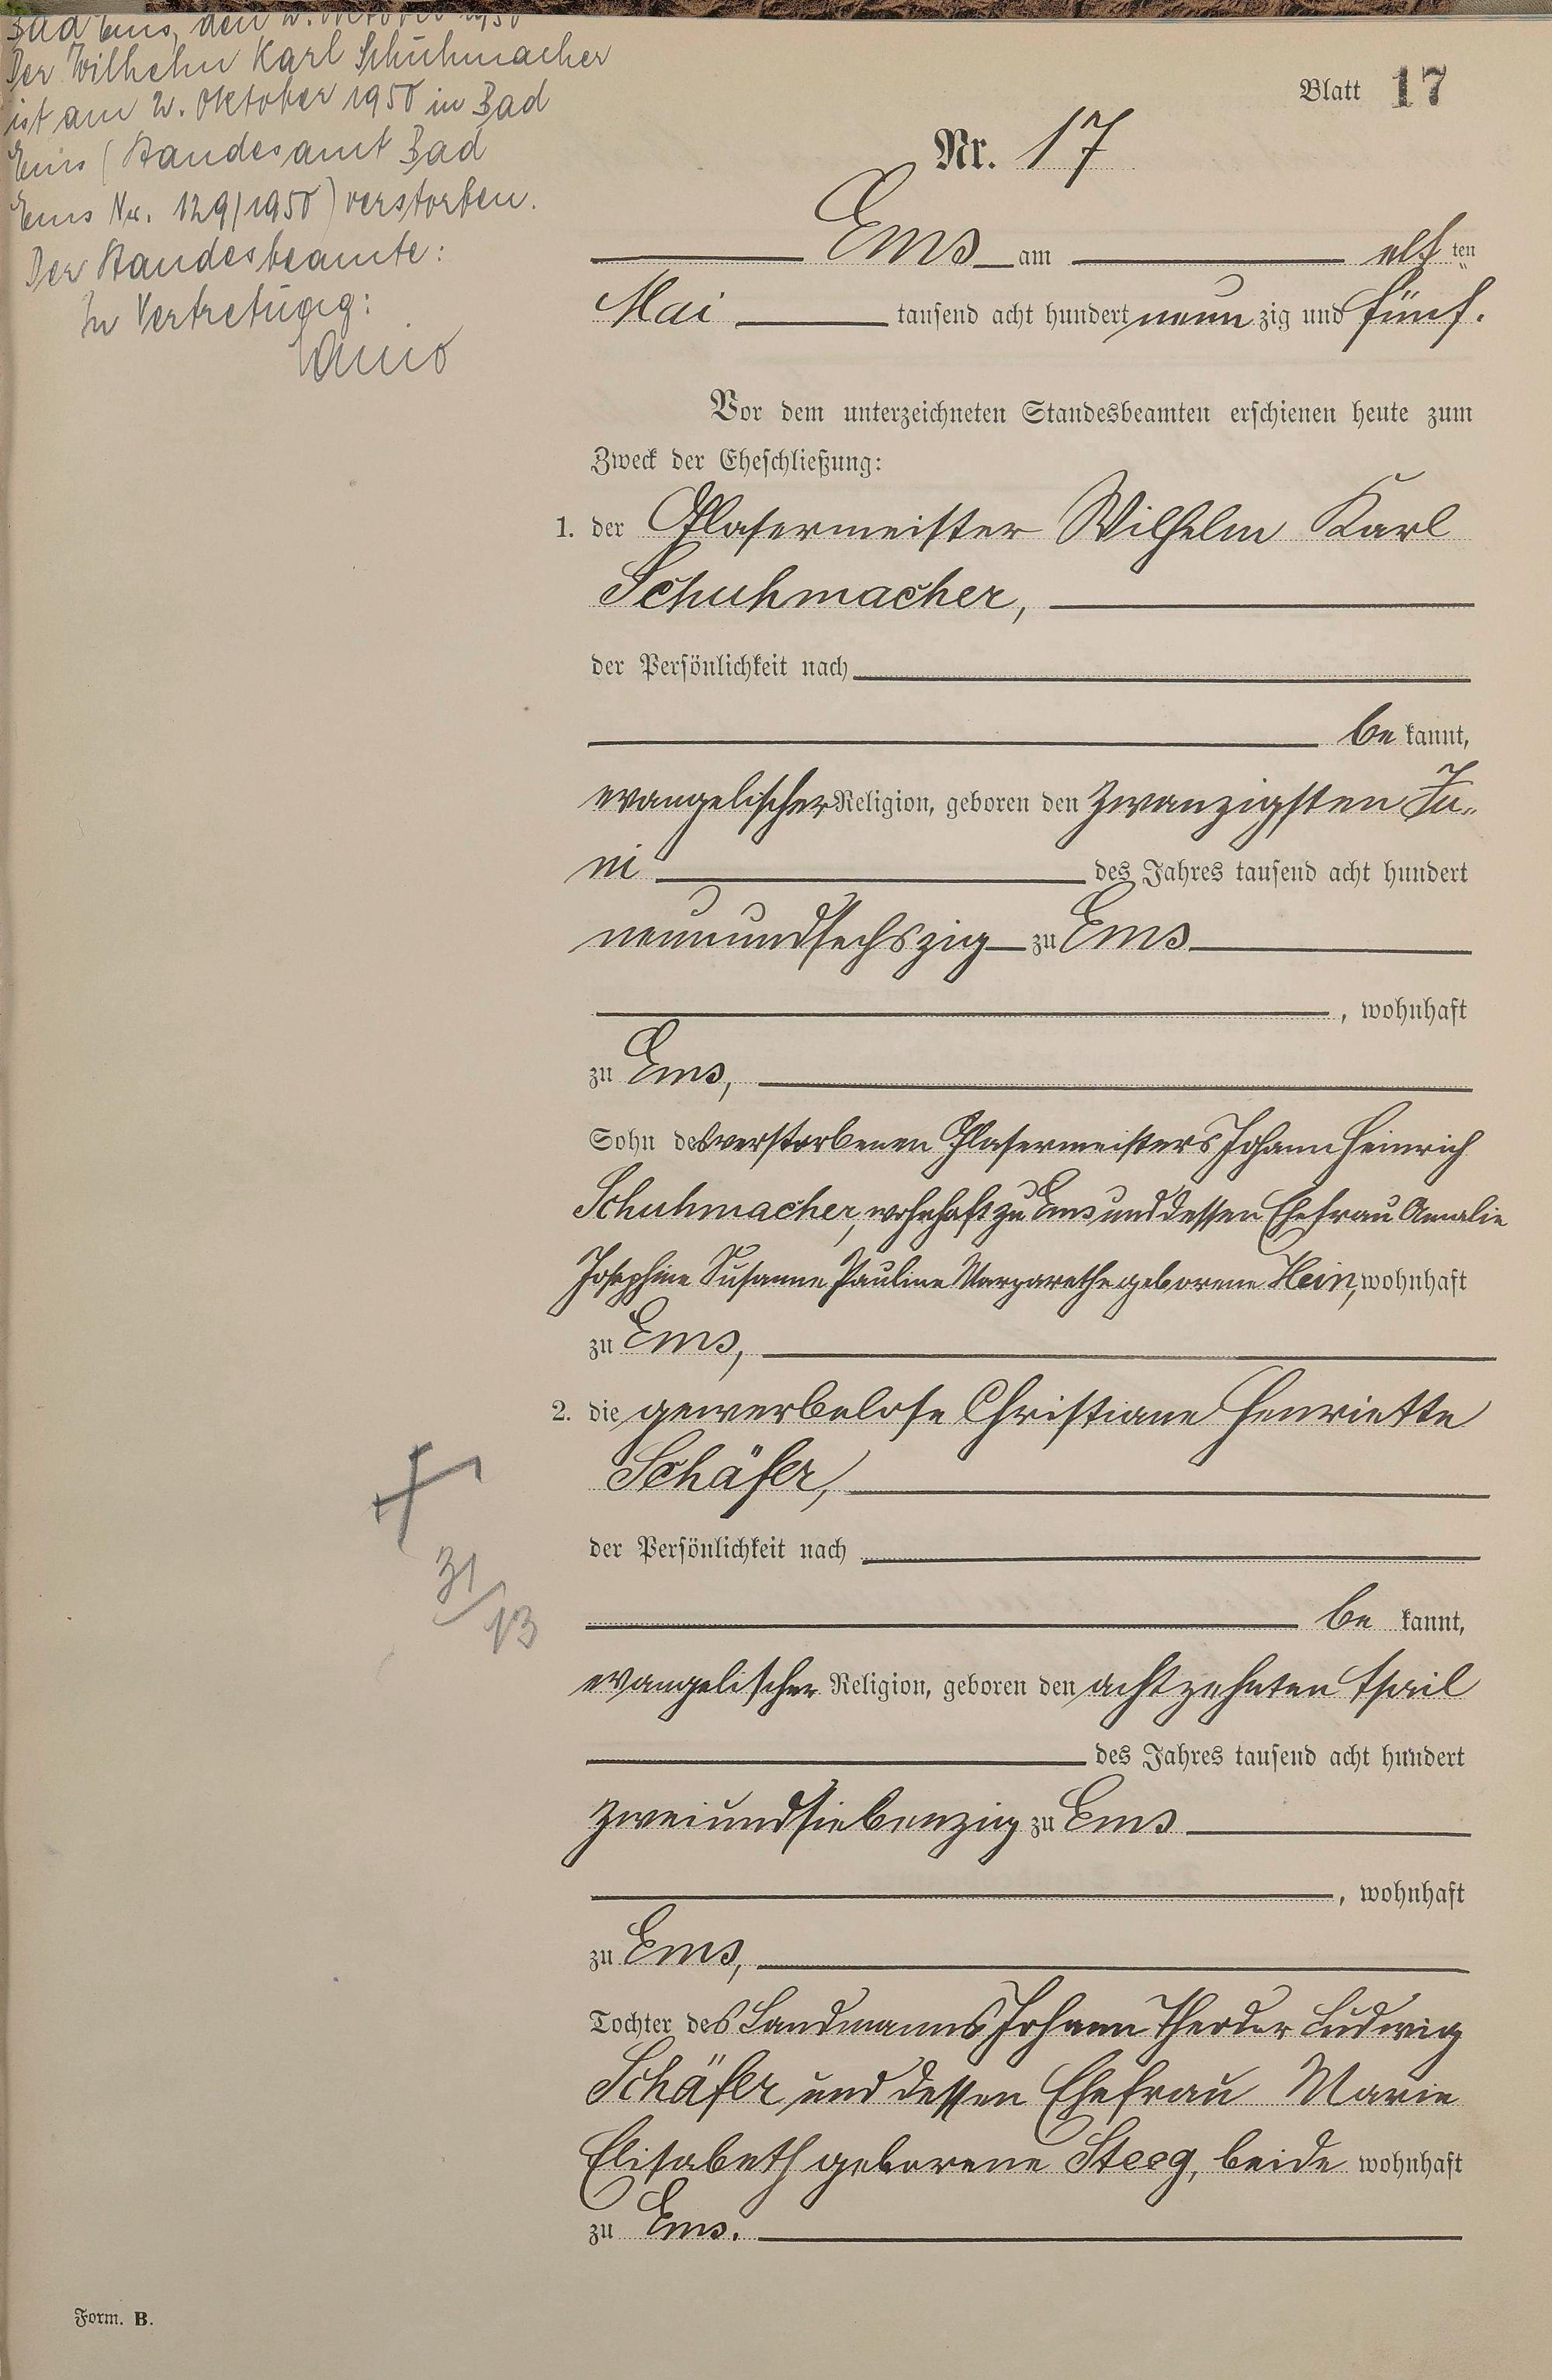 Bad Ems, den 2. Oktober 1950
Der Wilhelm Karl Schuhmacher
ist am 2. Oktober 1950 in Bad
Ems (Standesamt Bad
Ems Nr. 129/1950) verstorben.
Der Standesbeamte:
In Vertretung:
Blatt 17
Nr. 17
Ems am elf ten
Mai tausend acht hundert neun zig und fünf.
Vor dem unterzeichneten Standesbeamten erschienen heute zum
Zweck der Eheschließung:
1. der Glasermeister Wilhelm Karl
Schuhmacher,
der Persönlichkeit nach
be kannt,
evangelischer Religion, geboren den zwanzigsten Ju-
ni des Jahres tausend acht hundert
neunundsechszig zu Ems
, wohnhaft
zu Ems,
Sohn des verstorbenen Glasermeisters Johann Heinrich
Schuhmacher, wohnhaft zu Ems und dessen Ehefrau Amalie
Josephine Susanne Pauline Margarethe geborene Hein, wohnhaft
zu Ems,
2. die gewerbelose Christiane Henriette
Schäfer,
der Persönlichkeit nach
31/13
be kannt,
evangelischer Religion, geboren den achtzehnten April
des Jahres tausend acht hundert
zweiundsiebenzig zu Ems
, wohnhaft
zu Ems,
Tochter des Landmanns Johann Theodor Ludwig
Schäfer und dessen Ehefrau Marie
Elisabeth geborene Steeg, beide wohnhaft
zu Ems.
Form. B.